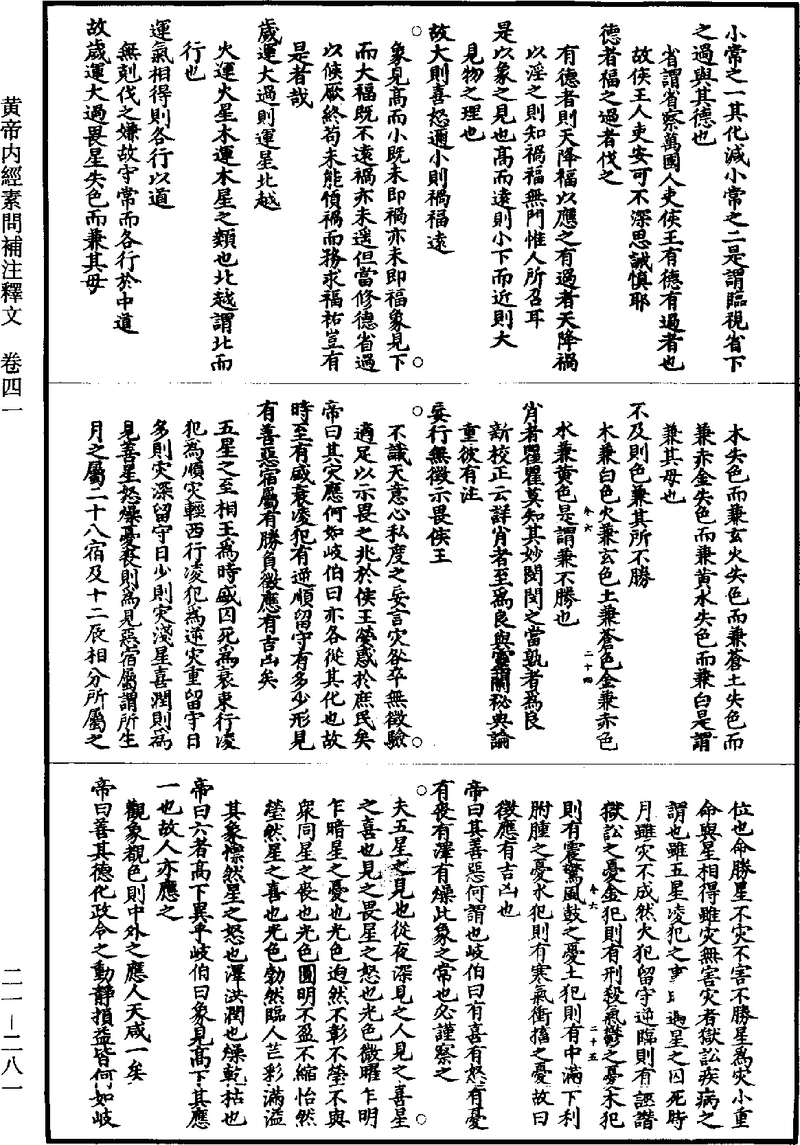 黄帝内經素問補注釋文　卷四一
二一—二八一
小常之一其化減小常之二是謂臨視省下
之過與其德也
省謂省察萬國人吏侯王有德有過者也
故侯王人吏安可不深思誡慎耶
德者福之過者伐之
有德者則天降福以應之有過者天降禍
以淫之則知禍福無門惟人所召耳
是以象之見也高而遠則小下而近則大
見物之理也
故大則喜怒邇小則禍福遠
象見高而小既未即禍亦未即福象見下
而大福既不遠禍亦未遥但當修德省過
以候厥終苟未能慎禍而務求福祐豈有
是者哉
歲運大過則運星北越
火運火星木運木星之類也北越謂北而
行也
運氣相得則各行以道
無剋伐之嫌故守常而各行於中道
故歲運大過畏星失色而兼其母
木失色而兼玄火失色而兼蒼土失色而
兼赤金失色而兼黄水失色而兼白是謂
兼其母也
不及則色兼其所不勝
木兼白色火兼玄色土兼蒼色金兼赤色
水兼黄色是謂兼不勝也
卷六
二十四
肖者瞿瞿莫知其妙閔閔之當孰者為良
新校正云詳肖者至為良與靈蘭秘典論
重彼有注
妄行無徵示畏侯王
不識天意心私度之妄言灾咎卒無徵驗
適足以示畏之兆於侯王熒惑於庶民矣
帝曰其灾應何如岐伯曰亦各從其化也故
時至有盛衰凌犯有逆順留守有多少形見
有善惡宿屬有勝負徵應有吉凶矣
五星之至相王為時盛囚死為衰東行凌
犯為順灾輕西行凌犯為逆灾重留守日
多則灾深留守日少則灾淺星喜潤則為
見善星怒燥憂喪則為見惡宿屬謂所生
月之屬二十八宿及十二辰相分所屬之
位也命勝星不灾不害不勝星為灾小重
命與星相得雖灾無害灾者獄訟疾病之
謂也雖五星凌犯之事 遇星之囚死時
月雖灾不成然火犯留守逆臨則有誣譖
獄訟之憂金犯則有刑殺氣鬱之憂木犯
卷六
二十五
則有震驚風鼓之憂土犯則有中滿下利
胕腫之憂水犯則有寒氣衝稸之憂故曰
徵應有吉凶也
帝曰其善惡何謂也岐伯曰有喜有怒有憂
有喪有澤有燥此象之常也必謹察之
夫五星之見也從夜深見之人見之喜星
之喜也見之畏星之怒也光色微曜乍明
乍暗星之憂也光色迥然不彰不瑩不與
衆同星之喪也光色圓明不盈不縮怡然
瑩然星之喜也光色勃然臨人芒彩滿溢
其象懍然星之怒也澤洪潤也燥乾枯也
帝曰六者高下異乎岐伯曰象見高下其應
一也故人亦應之
觀象覩色則中外之應人天咸一矣
帝曰善其德化政令之動靜損益皆何如岐